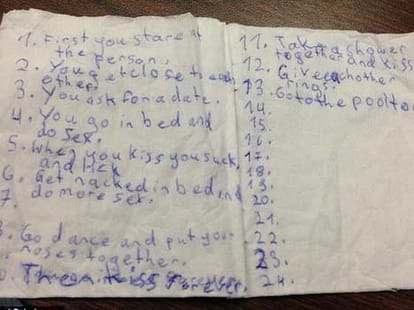 1. First you stare at
the person.
2. You get close to each
other.
3. You ask for a date.
4. You go in bed and
do sex.
5. When you kiss you suck
and lick
6. Get nacked in bed, and
7. do more sex.
Go dance and put your
noses together.
Then kiss forever.
11. Take a shower
together and kiss
12. Give each other
13. rings.
Go to the pool to
14.
15.
16.
17.
18.
19.
20.
21.
22.
23.
24.